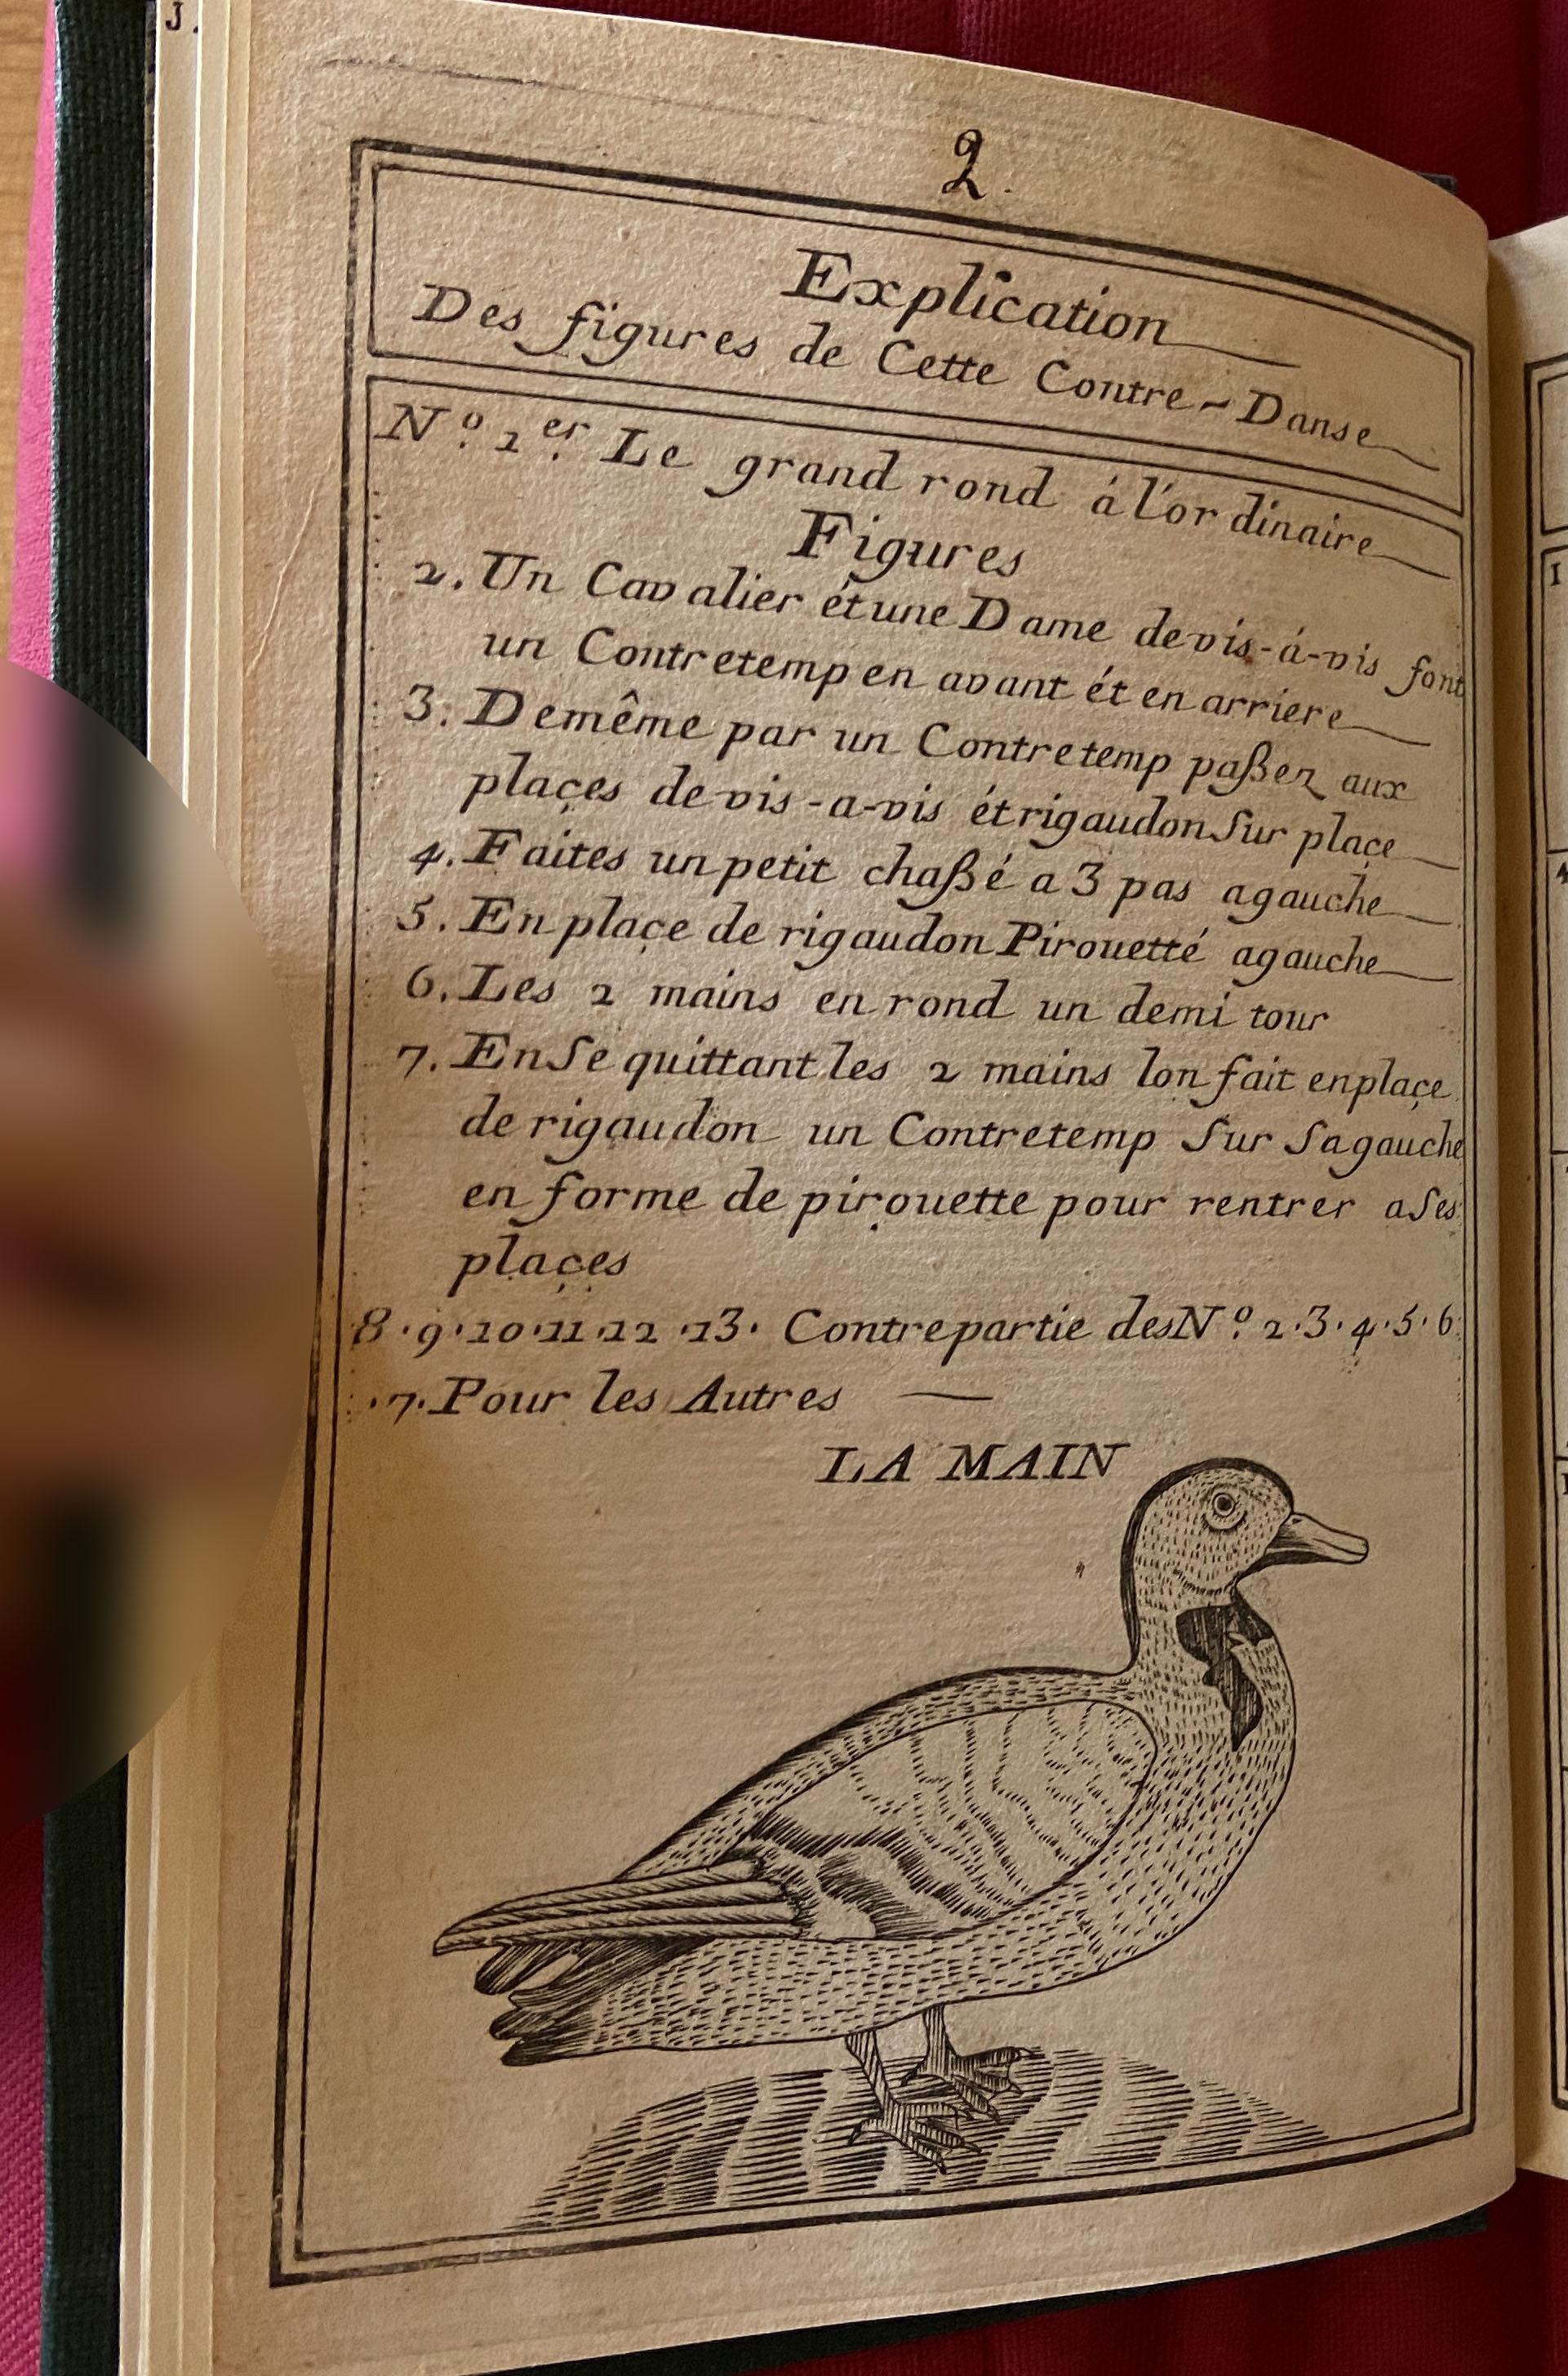 J.
2.
Explication
Des figures de Cette Contre-Danse
N.º 1.er Le grand rond á l'ordinaire
Figures
2. Un Cavalier ét une Dame de vis-á-vis font
un Contretemp en avant ét en arriere
3. De même par un Contretemp paßez aux
plaçes de vis-a-vis ét rigaudon Sur plaçe
4. Faites un petit chaßé a 3 pas a gauche
5. En plaçe de rigaudon Pirouetté a gauche
6. Les 2 mains en rond un demi tour
7. En Se quittant les 2 mains lon fait en plaçe
de rigaudon un Contretemp Sur Sa gauche
en forme de pirouette pour rentrer a Ses
plaçes
8.9.10.11.12.13. Contrepartie des N.º 2.3.4.5.6.
.7. Pour les Autres
LA MAIN